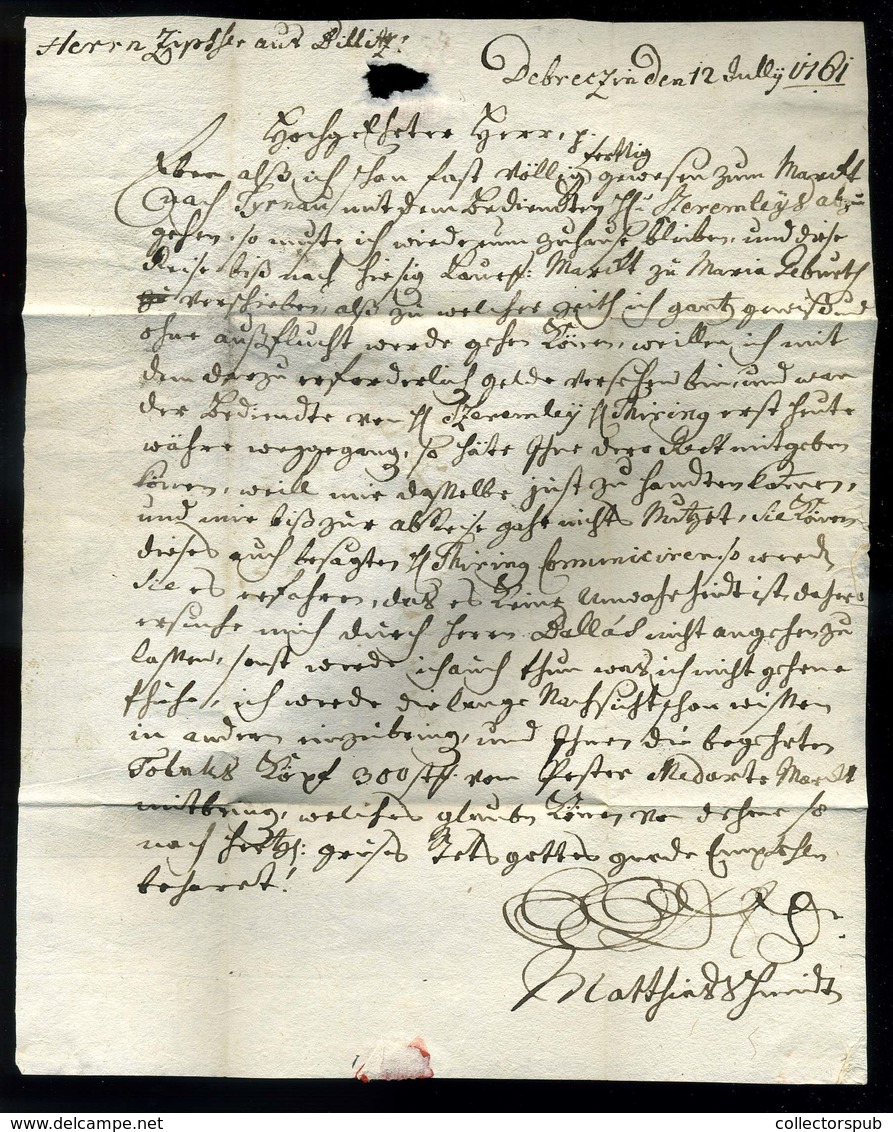 Herrn Zipser aus Billitz!
Debreczin den 12 Jully 1761
HochgeEhrter Herr p.
Eben alß ich schon fast völlig fertig gewesen zum Marckt
nach Tyrnau mit dem Bedienten H: Szeremleys abzu
gehen, so muste ich wiederumm zuhause bleiben, und diese
Reise biß nach hiesig Marckt zu Maria Geburth
verschieben, alß zu welcher zeith ich gantz gewiß und
ohne außflucht werde gehen Könen, weillen ich mit
dem darzu erforderlich gelde versehen bin, und wan
der Bediendte von H Szeremley H Thiring erst heute
währe weggegang, so häte Ihne dero Rest mitgeben
könen, weill mir dasselbe just zu handten komen,
und mir biß zur abReise gahr nichts Nutzet, sie Könen
dieses auch besagten H Thiring Comuniciren, so werdt
sie es erfahren, das es keine Unwahrheidt ist, dahero
ersuche mich durch Herrn Dallás nicht angehen zu
lassen, sonst werde ich auch thun was ich nicht gehrne
thuhe, ich werde die lange Nachsicht schon wissen
in andern einzubring, und Ihnen die begehrten
Tobaks Köpf 300 st. vom Pester Medarte Marckt
mitbring, welches glauben Könen von dehme so
nach hertzl: grus gottes gnade Empfehln
beharet!
Matthias Schmidt
collectorspub